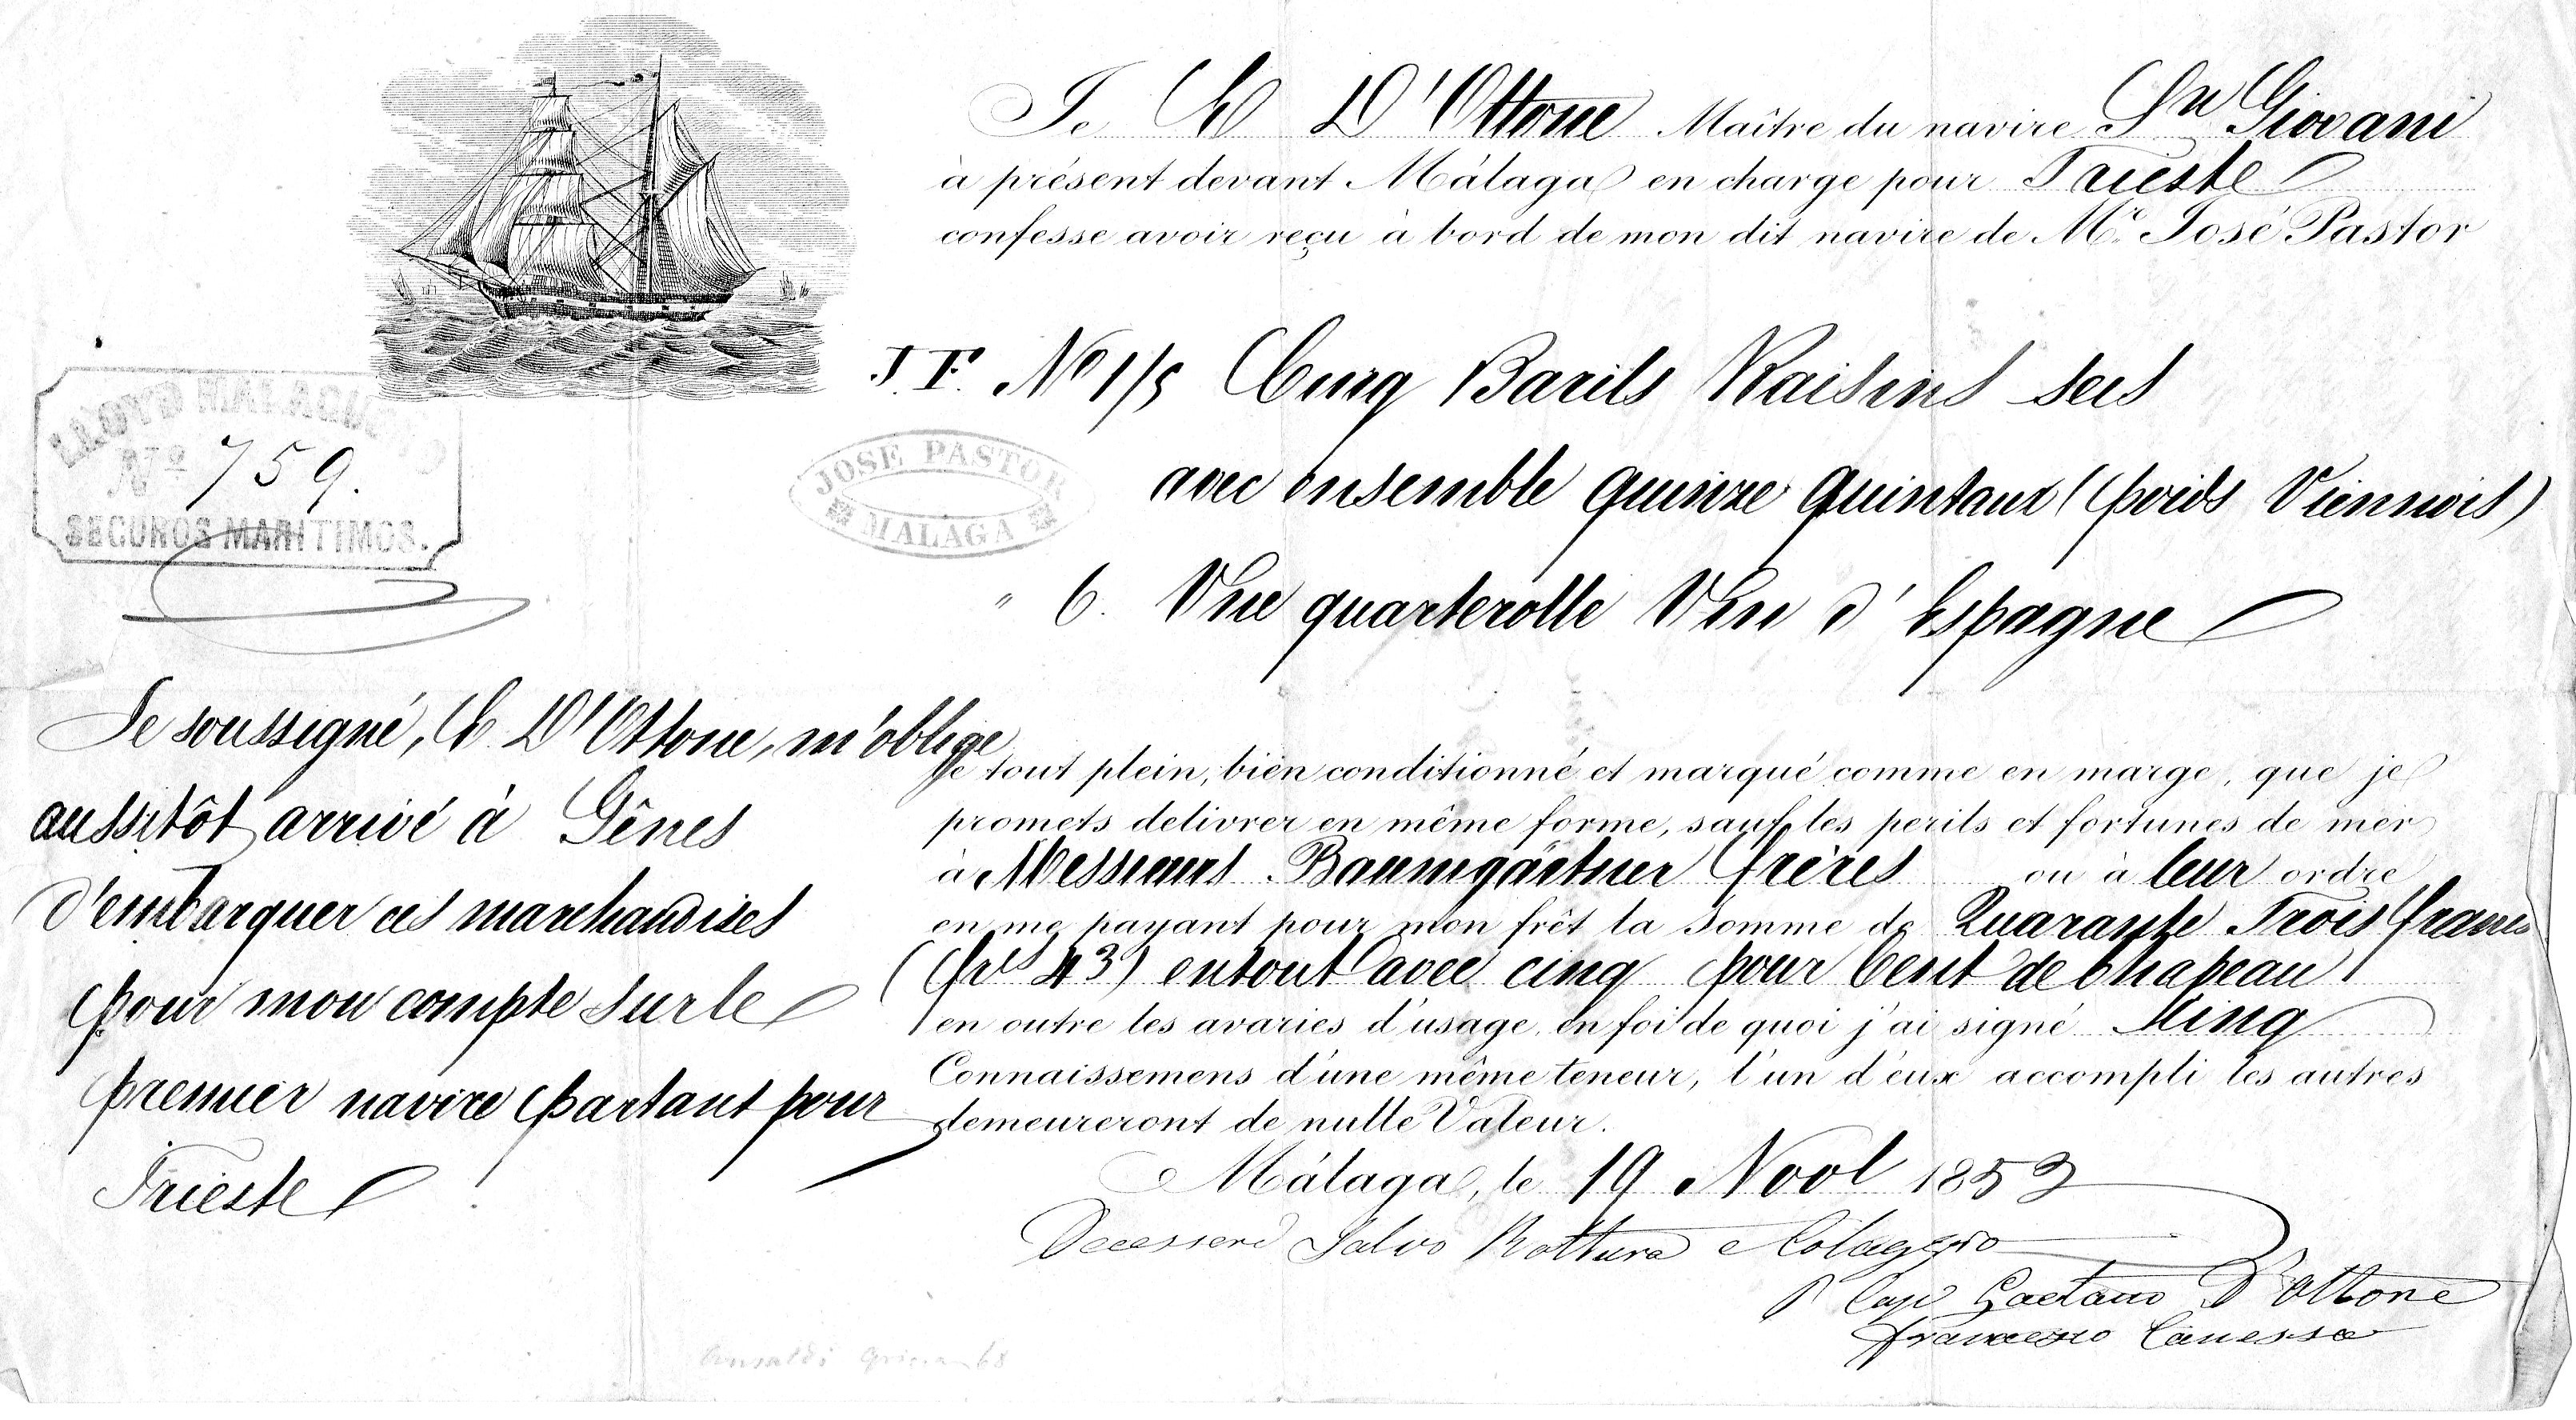 Je G D'Ottone Maître du navire Sn Giovani
à présent devant Málaga en charge pour Trieste
confesse avoir reçu à bord de mon dit navire de Mr. José Pastor
LLOYD MALAGUEÑO
Nº 759.
SEGUROS MARITIMOS.
JOSE PASTOR
MALAGA
Nº 1/5 Cinq Barils Raisins secs
avec ensemble quinze quintaux (poids Viennois)
" 6. Une quarterolle Vin d'Espagne
Je soussigné, G. D'Ottone, m'oblige
aussitôt arrivé à Gênes
d'embarquer ces marchandises
pour mon compte sur le
premier navire partant pour
Trieste !
le tout plein, bien conditionné et marqué comme en marge, que je
promets delivrer en même forme, sauf les perils et fortunes de mer
à Messieurs Baumgärtner frères ou à leur ordre
en me payant pour mon frêt la somme de Quarante Trois francs
(frs 43) en tout avec cinq pour Cent de chapeau
en outre les avaries d'usage, en foi de quoi j'ai signé
Connaissemens d'une même teneur, l'un d'eux accompli les autres
demeureront de nulle Valeur.
Málaga, le 19 Novbl 1853
Salvo Rottura e Colaggio
P Cap Gaetano D'Ottone
Francesco Canessa